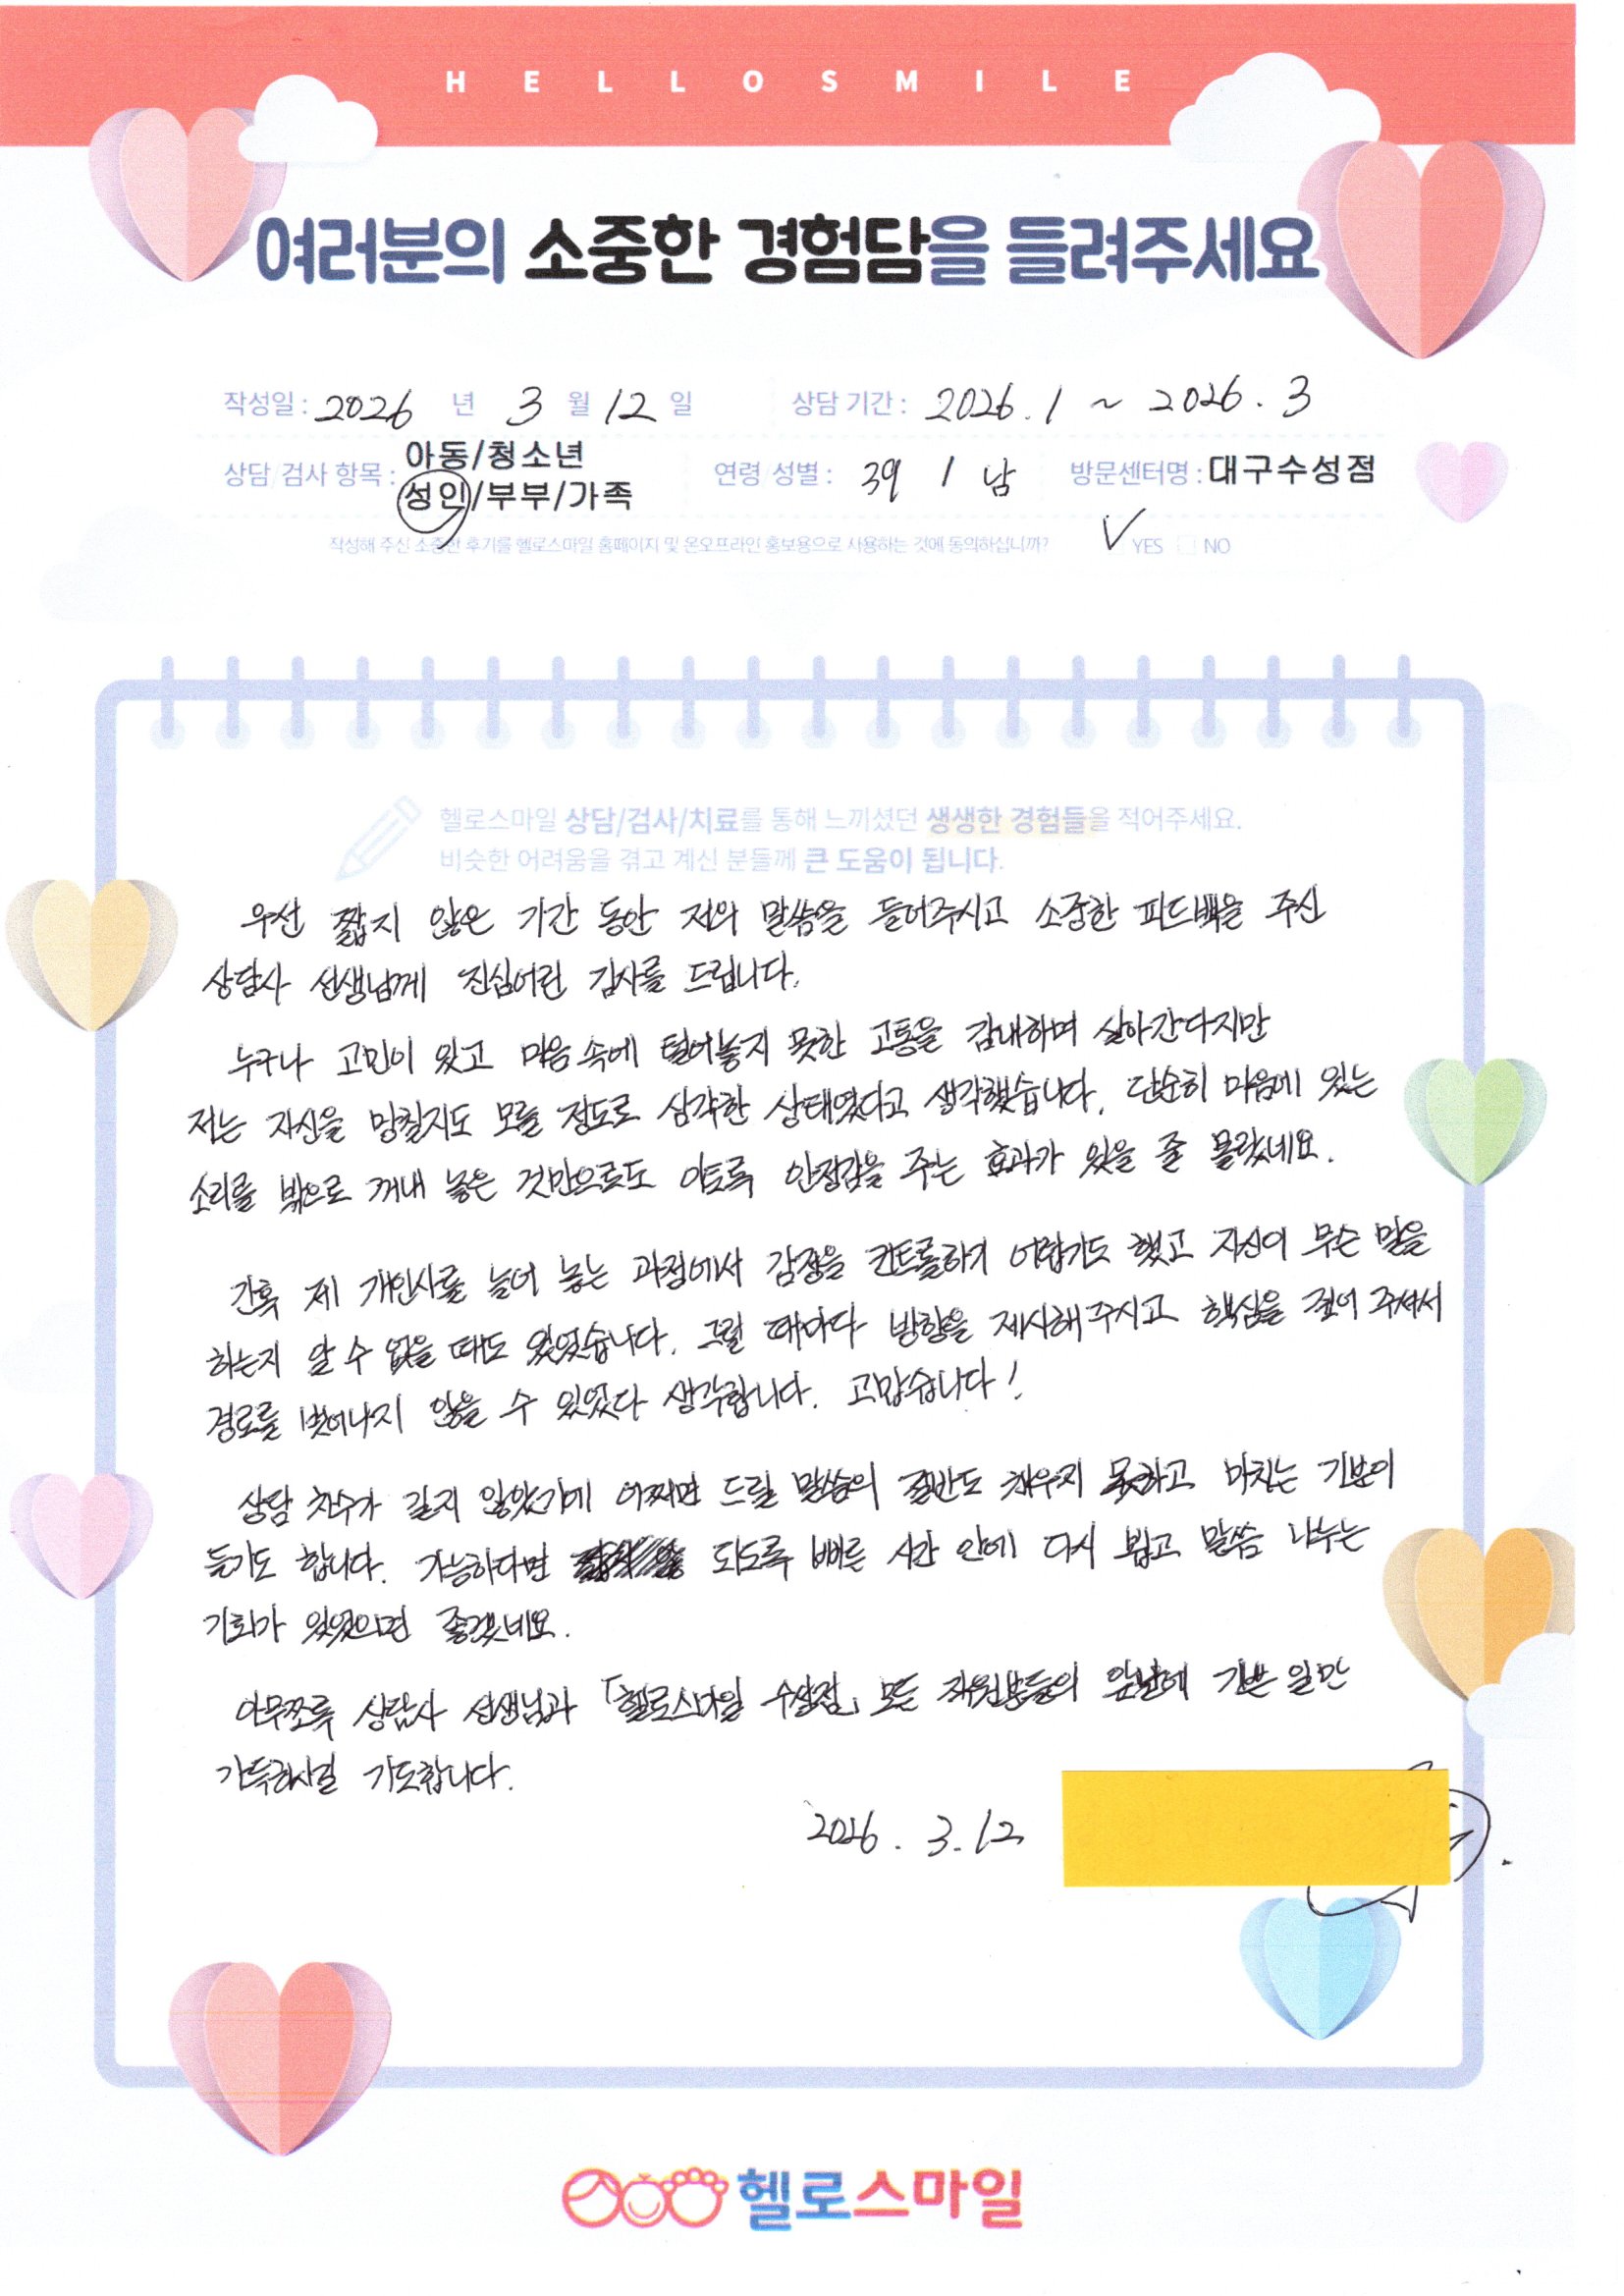 HELLOSMILE
여러분의 소중한 경험담을 들려주세요
작성일 : 2026 년 3 월 12 일 상담 기간 : 2026. 1 ~ 2026. 3
아동/청소년
상담/검사 항목 : 성인/부부/가족 연령/성별 : 39 / 남 방문센터명 : 대구수성점
작성해 주신 소중한 후기를 헬로스마일 홈페이지 및 온오프라인 홍보용으로 사용하는 것에 동의하십니까? YES NO
헬로스마일 상담/검사/치료를 통해 느끼셨던 생생한 경험들을 적어주세요.
비슷한 어려움을 겪고 계신 분들께 큰 도움이 됩니다.
우선 짧지 않은 기간 동안 저의 말씀을 들어주시고 소중한 피드백을 주신
상담사 선생님께 진심어린 감사를 드립니다.
누구나 고민이 있고 마음 속에 털어놓지 못한 고통을 감내하며 살아간다지만
저는 자신을 망칠지도 모를 정도로 심각한 상태였다고 생각했습니다. 단순히 마음에 있는
소리를 밖으로 꺼내 놓은 것만으로도 이토록 안정감을 주는 효과가 있을 줄 몰랐네요.
간혹 제 개인사를 늘어 놓는 과정에서 감정을 컨트롤하기 어렵기도 했고 자신이 무슨 말을
하는지 알 수 없을 때도 있었습니다. 그럴 때마다 방향을 제시해주시고 핵심을 짚어 주셔서
경로를 벗어나지 않을 수 있었다 생각합니다. 고맙습니다!
상담 차수가 길지 않았기에 어쩌면 드릴 말씀의 절반도 채우지 못하고 마치는 기분이
들기도 합니다. 가능하다면 되도록 빠른 시간 안에 다시 뵙고 말씀 나누는
기회가 있었으면 좋겠네요.
아무쪼록 상담사 선생님과 「헬로스마일 수성점」 모든 직원분들의 앞날에 기쁜 일만
가득하시길 기도합니다.
2026. 3. 12
헬로스마일